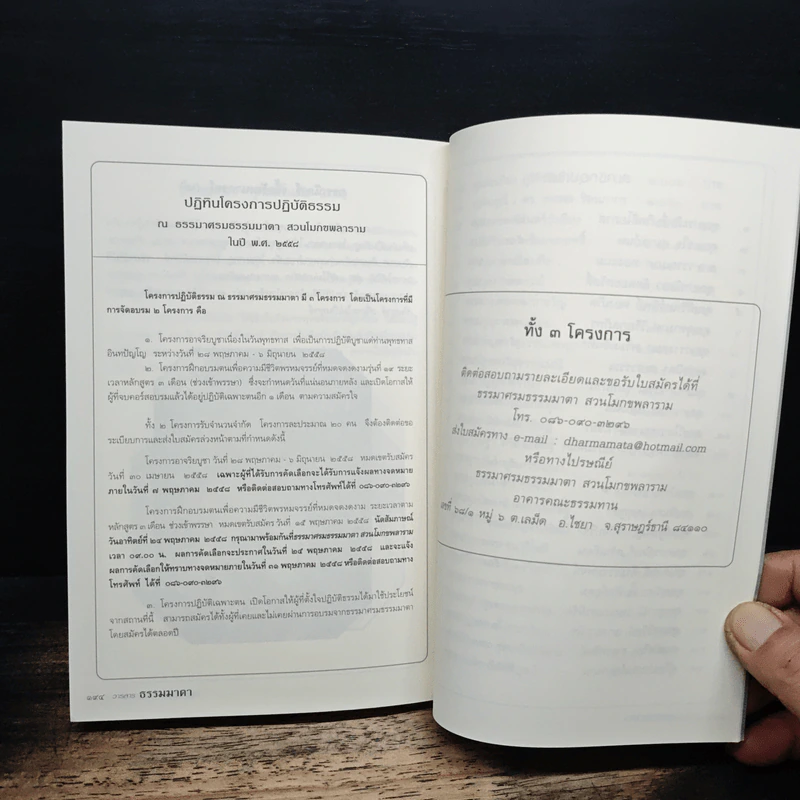 ปฏิทินโครงการปฏิบัติธรรม
ณ ธรรมาศรมธรรมมาตา สวนโมกขพลาราม
ในปี พ.ศ. ๒๕๕๘
โครงการปฏิบัติธรรม ณ ธรรมาศรมธรรมมาตา มี ๓ โครงการ โดยเป็นโครงการที่มี
การจัดอบรม ๒ โครงการ คือ
๑. โครงการอาจริยบูชาเนื่องในวันพุทธทาส เพื่อเป็นการปฏิบัติบูชาแด่ท่านพุทธทาส
อินทปัญโญ ระหว่างวันที่ ๒๘ พฤษภาคม - ๖ มิถุนายน ๒๕๕๘
๒. โครงการฝึกอบรมตนเพื่อความมีชีวิตพรหมจรรย์ที่หมดจดงดงามรุ่นที่ ระยะ
เวลาหลักสูตร ๓ เดือน (ช่วงเข้าพรรษา) ซึ่งจะกำหนดวันที่แน่นอนภายหลัง และเปิดโอกาสให้
ผู้ที่จบคอร์สอบรมแล้วได้อยู่ปฏิบัติเฉพาะตนอีก ๑ เดือน ตามความสมัครใจ
ทั้ง ๒ โครงการรับจำนวนจำกัด โครงการละประมาณ ๒๐ คน จึงต้องติดต่อขอ
ระเบียบการและส่งใบสมัครล่วงหน้าตามที่กำหนดดังนี้
โครงการอาจริยบูชา วันที่ ๒๘ พฤษภาคม - ๖ มิถุนายน ๒๕๕๘ หมดเขตรับสมัคร
วันที่ ๓๐ เมษายน ๒๕๕๘ เฉพาะผู้ที่ได้รับการคัดเลือกจะได้รับการแจ้งผลทางจดหมาย
ภายในวันที่ ๗ พฤษภาคม ๒๕๕๘ หรือติดต่อสอบถามทางโทรศัพท์ได้ที่ ๐๘๖-๐๙๐-๓๒๙๖
โครงการฝึกอบรมตนเพื่อความมีชีวิตพรหมจรรย์ที่หมดจดงดงาม ระยะเวลาตาม
หลักสูตร ๓ เดือน ช่วงเข้าพรรษา หมดเขตรับสมัคร วันที่ ๑๕ พฤษภาคม ๒๕๕๘ นัดสัมภาษณ์
วันอาทิตย์ที่ ๒๔ พฤษภาคม ๒๕๕๘ กรุณามาพร้อมกันที่ธรรมาศรมธรรมมาตา สวนโมกขพลาราม
เวลา ๐๙.๐๐ น. ผลการคัดเลือกจะประกาศในวันที่ ๒๔ พฤษภาคม ๒๕๕๘ และจะแจ้ง
ผลการคัดเลือกให้ทราบทางจดหมายภายในวันที่ ๓๑ พฤษภาคม ๒๕๕๘ หรือติดต่อสอบถามทาง
โทรศัพท์ ได้ที่ ๐๘๖-๐๙๐-๓๒๙๖
๓. โครงการปฏิบัติเฉพาะตน เปิดโอกาสให้ผู้ที่ตั้งใจปฏิบัติธรรมได้มาใช้ประโยชน์
จากสถานที่นี้ สามารถสมัครได้ทั้งผู้ที่เคยและไม่เคยผ่านการอบรมจากธรรมาศรมธรรมมาตา
โดยสมัครได้ตลอดปี
๑๙๔ วารสาร ธรรมมาตา
ทั้ง ๓ โครงการ
ติดต่อสอบถามรายละเอียดและขอรับใบสมัครได้ที่
ธรรมาศรมธรรมมาตา สวนโมกขพลาราม
โทร. ๐๘๖-๐๙๐-๓๒๙๖
ส่งใบสมัครทาง e-mail : dharmamata@hotmail.com
หรือทางไปรษณีย์
ธรรมาศรมธรรมมาตา สวนโมกขพลาราม
อาคารคณะธรรมทาน
เลขที่ ๖๘/๑ หมู่ ๖ ต.เลม็ด อ.ไชยา จ.สุราษฎร์ธานี ๘๔๑๑๐